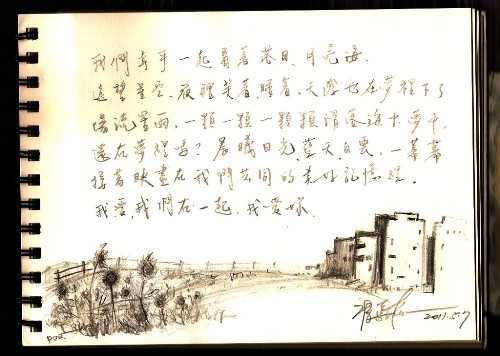 我們牽手一起看著落日、月亮海、
遠望星空、夜裡笑著、睡著、天 也在夢裡下了
場流星雨,一顆一顆一顆顆滑落進 夢中,
還在夢裡嗎?晨曦日光、藍天白雲、一幕幕
接著映畫在我們共同的美好記憶裡.
我愛我們在一起,我愛妳.
2011.5.7